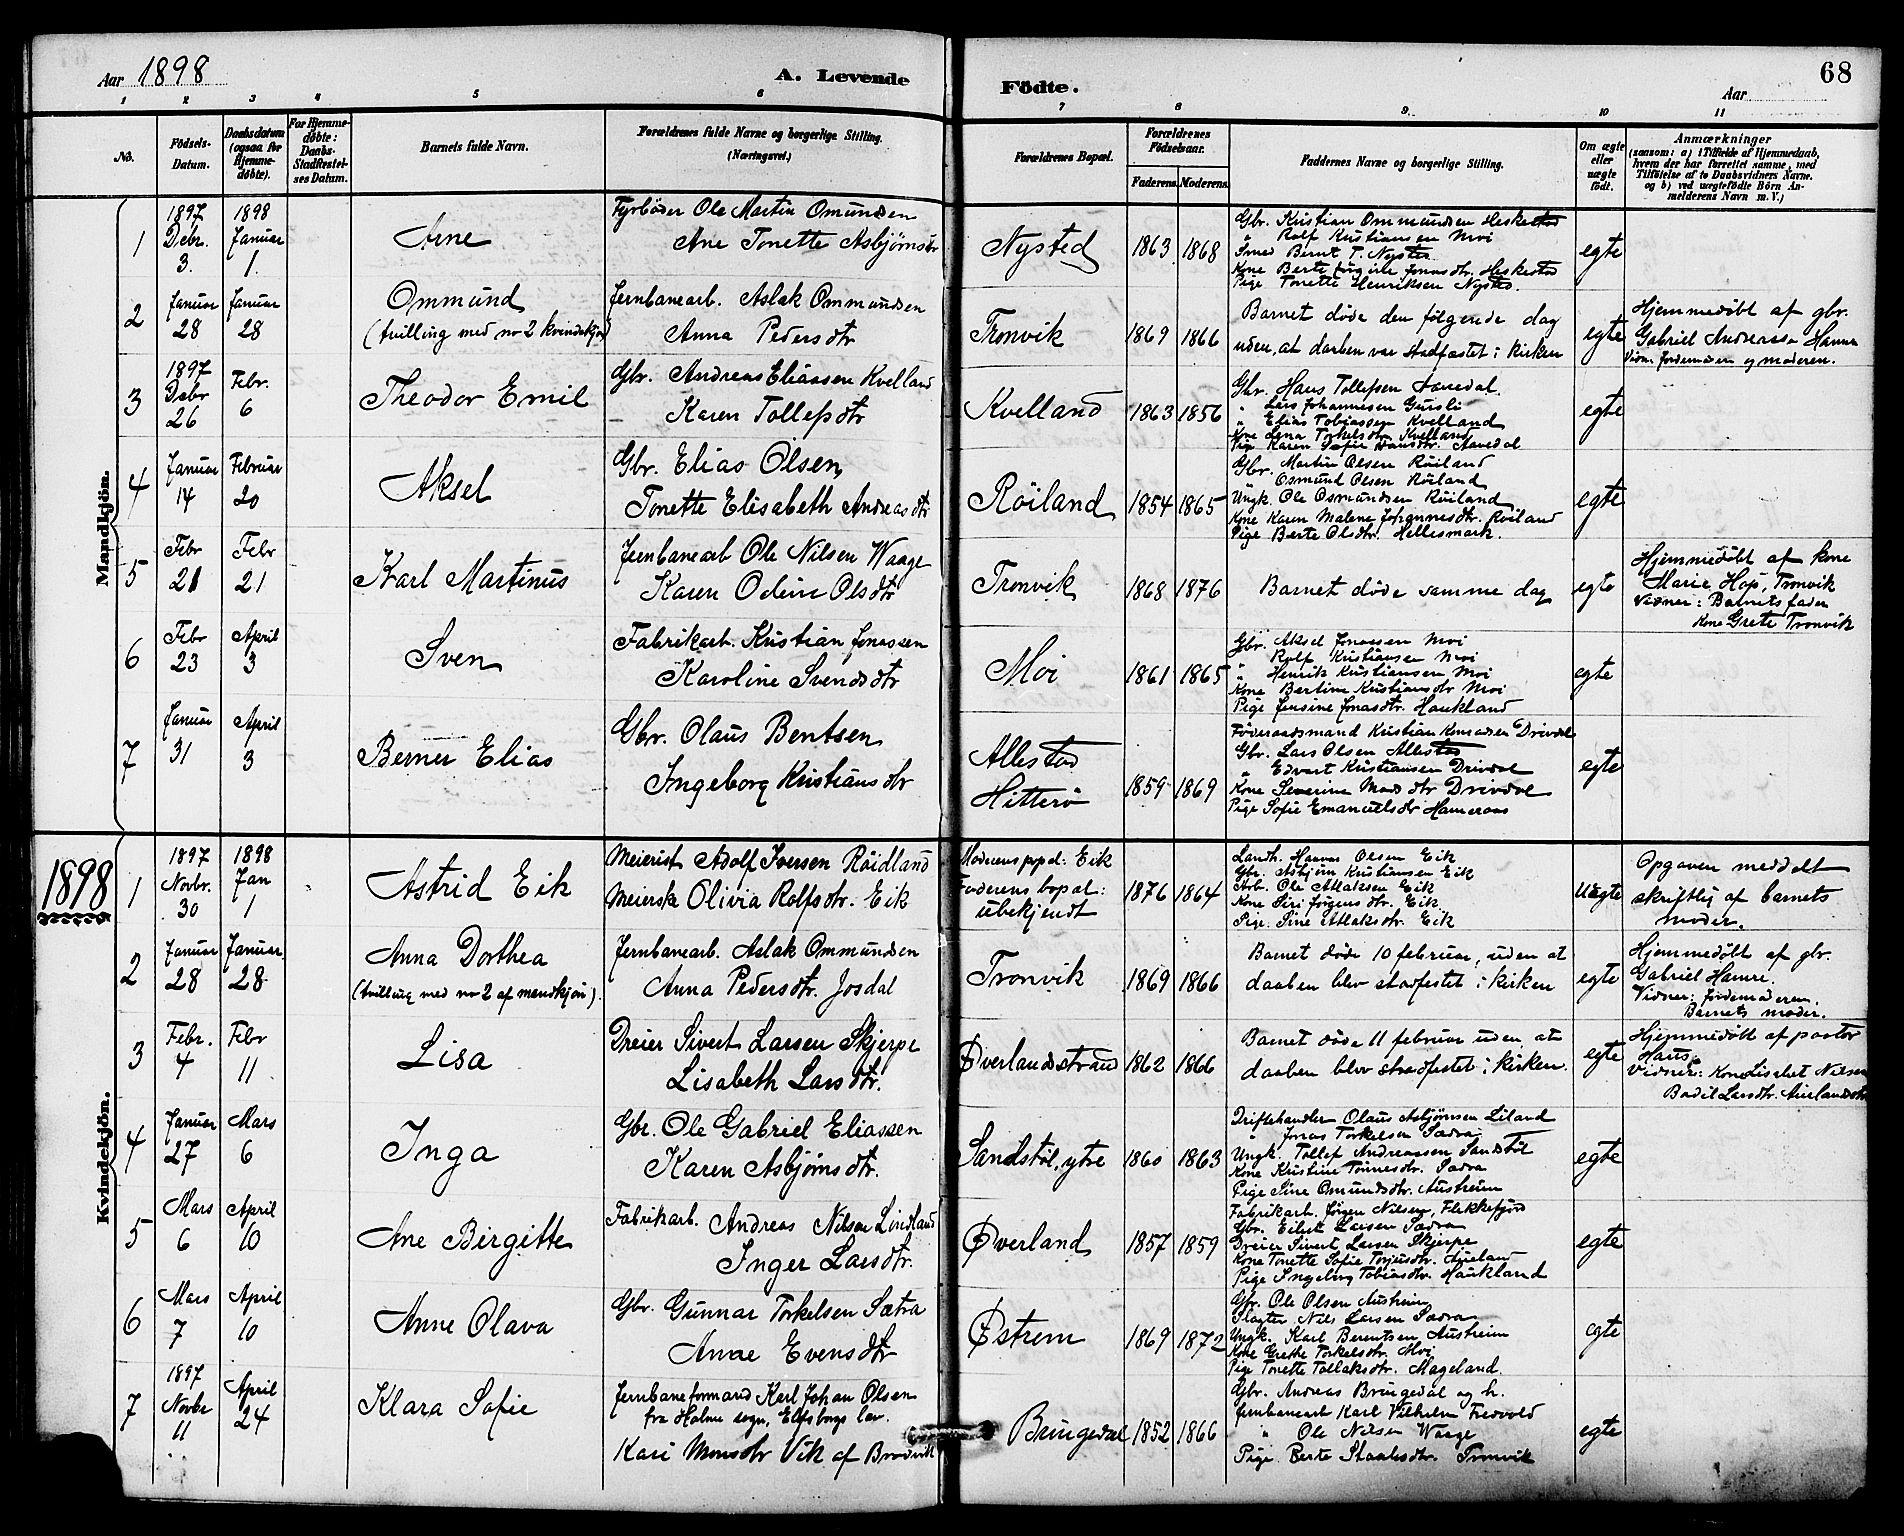 Aar 1898
A. Levende
Födte.
68
Aar
1 2 3 4 5 6 7 8 9 10 11
No.
Födsels-Datum.
Daabsdatum (ogsaa for Hjemme-døbte).
For Hjemme-døbte: Daabs-Stadfæstel-ses Datum.
Barnets fulde Navn.
Forældrenes fulde Navne og borgerlige Stilling. (Næringsvei.)
Forældrenes Bopæl.
Forældrenes Fødselsaar.
Faderens. Moderens.
Faddernes Navne og borgerlige Stilling.
Om ægte eller uægte født.
Anmærkninger
(saasom: a) i Tilfælde af Hjemmedaab, hvem der har forrettet samme, med Tilføielse af to Daabsvidners Navne, og b) ved uægtefödte Börn Anmelderens Navn m. V.)
Mandkjön.
1
1897 Debr. 3.
1898 Januar 1.
Arne
Fyrbøder Ole Martin Omundsen
Ane Tonette Asbjørnsdtr
Nysted
1863 1868
Gbr. Kristian Ommundsen Heskestad
" Rolf Kristiansen Moi
Smed Bernt T. Nysted
Kone Berte Jonasdtr. Heskestad
Pige Tonette Henriksen Nysted.
egte
2
Januar 28
Januar 28
Ommund
(tvilling med no 2 kvindekjøn)
Jernbanearb. Aslak Ommundsen
Anna Pedersdtr
Tronvik
1869 1866
Barnet døde den følgende dag
uden, at daaben var stadfæstet i kirken
egte
Hjemmedøbt af gbr.
Gabriel Andreassen Hamre
Vidn. Jordemoderen og moderen.
3
1897 Debr 26
Febr. 6
Theodor Emil
Gbr. Andreas Eliassen Kvelland
Karen Tollefsdtr
Kvelland
1863 1856
Gbr. Hans Tollefsen Aavedal
" Lars Johannesen Gursli
" Elias Tobiassen Kvelland
Kone Lena Torkelsdtr Kvelland
Pige Karen Sofie Hansdtr. Aavedal
egte
4
Januar 14
Februar 20
Aksel
Gbr. Elias Olsen
Tonette Elisabeth Andreasdtr
Röiland
1854 1865
Gbr. Martin Olsen Röiland
" Osmund Olsen Röiland
Ungk. Ole Osmundsen Röiland
Kone Karen Malene Johannesdtr. Röiland
Pige Berte Olsdtr. Hellesmark.
egte
5
Febr 21
Febr 21
Karl Martinus
Jernbanearb Ole Nilsen Waage
Karen Odine Olsdtr
Tronvik
1868 1876
Barnet døde samme dag
egte
Hjemmedøbt af kone
Marie Hop, Tronvik
Vidner: Barnets fader
Kone Grete Tronvik
6
Febr 23
April 3
Sven
Fabrikarb. Kristian Jonassen
Karoline Svendsdtr
Moi
1861 1865
Gbr. Aksel Jonassen Moi
" Rolf Kristiansen Moi
" Henrik Kristiansen Moi
Kone Bertine Kristiansdtr Moi
Pige Jensine Jonasdtr. Haukland
egte
7
Januar 31
April 3
Berner Elias
Gbr. Olaus Bentsen
Ingeborg Kristiansdtr
Allestad
Hitterö
1859 1869
Föderaadsmand Kristian Konradsen Drivdal
Gbr. Lars Olsen Allestad
" Edvart Kristiansen Drivdal
Kone Severine Madsdtr Drivdal
Pige Sofie Emanuelsdtr Hameraas
egte
1898
Kvindekjön.
1
1897 Novbr. 30
1898 Jan 1
Astrid Eik
Meierist Adolf Iversen Röidland
Meierske Olivia Rolfsdtr. Eik
Moderens bopæl: Eik
Faderens bopæl:
ubekjendt
1876 1864
Landh. Hans Olsen Eik
Gbr. Asbjørn Kristiansen Eik
Arb. Ole Atlaksen Eik
Kone Siri Jørgensdtr. Eik
Pige. Sine Atlaksdtr. Eik
uægte
Opgaven meddelt
skriftlig af barnets
moder.
2
Januar 28
Januar 28
Anna Dorthea
(tvilling med no 2 af mandkjön).
Jernbanearb. Aslak Ommundsen
Anna Pedersdtr. Josdal
Tronvik
1869 1866
Barnet døde 10 februar, uden at
daaben blev stadfestet i kirken
egte
Hjemmedøbt af gbr.
Gabriel Hamre.
Vidner: Jordemoderen.
Barnets moder.
3
Febr. 4
Febr 11
Lisa
Dreier Sivert Larsen Skjerpe
Lisabeth Larsdtr.
Øverlandsstrand
1862 1866
Barnet døde 11 februar uden, at
daaben blev stadfestet i kirken.
egte
Hjemmedøbt af pastor
Haus.
Vidner: Kone Lisabet Nilsen
Bodil Larsdtr. Auelandsstr
4
Januar 27
Mars 6
Inga
Gbr. Ole Gabriel Eliassen
Karen Asbjørnsdtr.
Sandstöl, ytre
1860 1863
Driftehandler Olaus Asbjørnsen Liland
" Jonas Torkelsen Sædra
Ungk. Tollef Andreassen Sandstöl
Kone Kristine Tønnesdtr. Sædra
Pige Sine Omundsdtr. Austreim
egte
5
Mars 6
April 10
Ane Birgitte
Fabrikarb. Andreas Nilsen Lindland
Inger Larsdtr.
Øverland
1857 1859
Fabrikarb. Jørgen Nilsen, Flekkefjord
Gbr. Eilert Larsen Sædra
Dreier Sivert Larsen Skjerpe
Kone Tonette Sofie Torjusdtr. Aueland
Pige Ingeborg Tobiasdtr. Haukland
egte
6
Mars 7
April 10
Anne Olava
Gbr. Gunnar Torkelsen Sætra
Anne Evensdtr
Østrem
1869 1872
Gbr. Ole Olsen Austreim
Slagter Nils Larsen Sædra
Ungk. Karl Berentsen Austreim
Kone Grethe Torkelsdtr. Moi
Pige Tonette Tollaksdtr. Mageland.
egte
7
1897 Novbr 11
April 24
Klara Sofie
Jernbaneformand Karl Johan Olsen
fra Holms sogn, Elfsborgs læn.
Kari Monsdtr Vik af Brodvik
Bringedal
1852 1866
Gbr. Andreas Bringedal og h.
Jernbanearb Karl Vilhelm Fredvold
" Ole Nilsen Waage
Pige. Berte Staalesdtr. Tronvik
egte